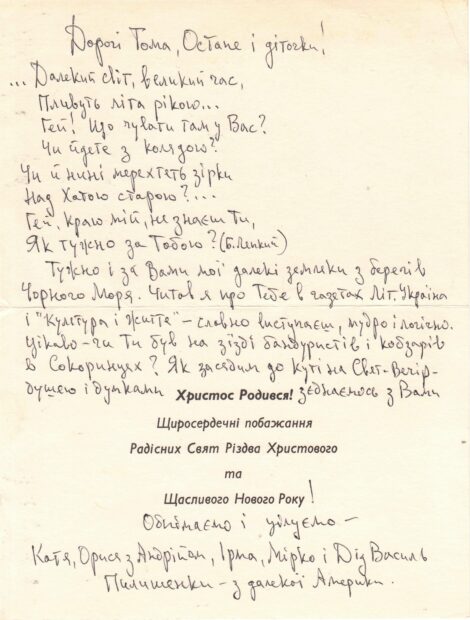 Дорогі Тома, Остапе і діточки!
... Далекий світ, великий час,
Пливуть літа рікою...
Гей! Що чувати там у Вас?
Чи йдете з колядою?
Чи й нині мерехтять зірки
Над Хатою старою?...
Гей, краю мій, не знаєш Ти,
Як тужно за Тобою? (Б. Лепкий)
Тужно і за Вами мої далекі земляки з берегів
Чорного Моря. Читав я про Тебе в газетах Літ. Україна
і "Культура і життя" – словно виступаєш, мудро і логічно.
Цікаво – чи Ти був на зїзді бандуристів і кобзарів
в Сокиринцях? Як засядим до Куті на Свят-Вечір-
душею і думками Христос Родився! зєднаємось з Вами
Щиросердечні побажання
Радісних Свят Різдва Христового
та
Щасливого Нового Року!
Обнімаємо і цілуємо –
Катя, Орися з Андрійом, Ірма, Мірко і Дід Василь
Пилишенки – з далекої Америки.